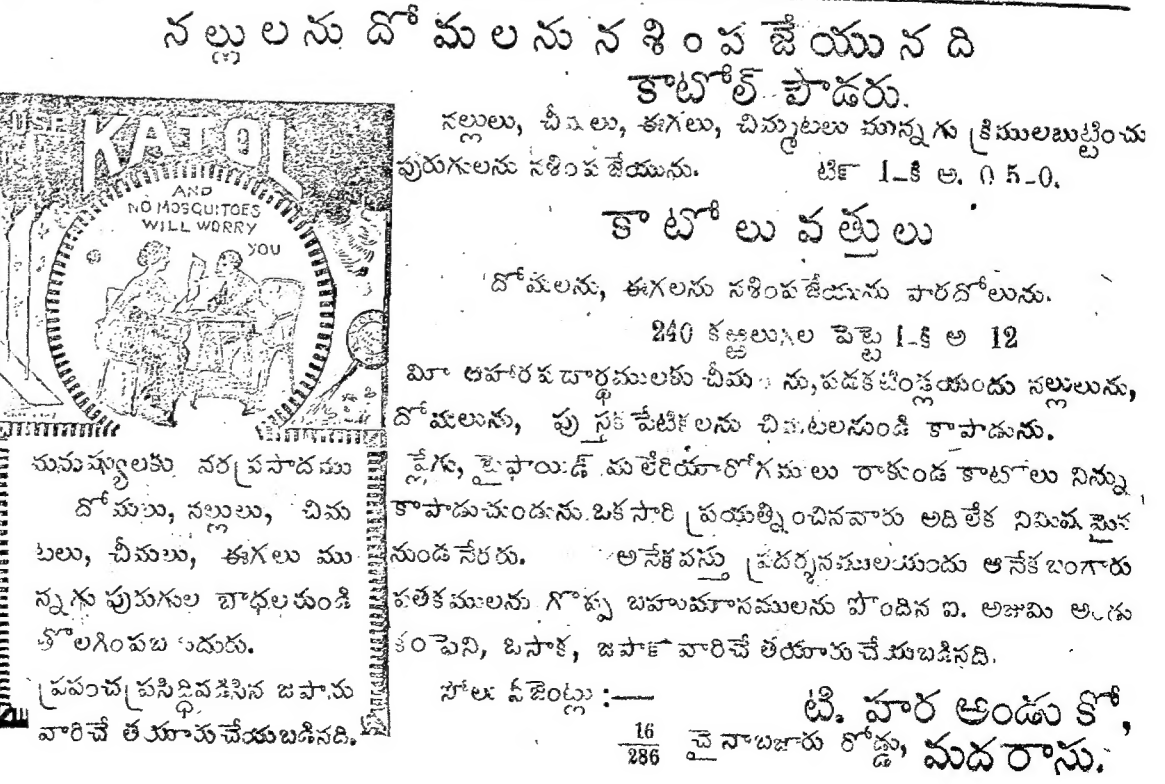 నల్లులను దోమలను నశింపజేయునది
కాటోల్ పౌడరు.
నల్లులు, చీమలు, ఈగలు, చిమ్మటలు మున్నగు క్రిములబుట్టించు
పురుగులను నశింపజేయును. టిక్ 1-కి అ. 0 5-0.
కాటోలు వత్తులు
దోమలను, ఈగలను నశింపజేయును పారదోలును.
240 కఱ్ఱలుగల పెట్టె 1-కి అ 12
మీ ఆహారపదార్థములకు చీమలను, పడకటిండ్లయందు నల్లులును,
దోమలును, పుస్తక పేటికలను చిమటలనుండి కాపాడును.
ప్లేగు, టైఫాయిడ్ మలేరియారోగములు రాకుండ కాటోలు నిన్ను
కాపాడుచుండును. ఒకసారి ప్రయత్నించినవారు అదిలేక నిమిషమైన
నుండనేరరు. అనేకవస్తు ప్రదర్శనములయందు అనేకబంగారు
పతకములను గొప్ప బహుమానములను పొందిన ఐ. అజుమి అండు
కంపెని, ఓసాక, జపాన్ వారిచే తయారుచేయబడినది.
సోలు ఏజెంట్లు :—
టి. హర అండు కో,
16/286 చైనాబజారు రోడ్డు, మదరాసు.
USE KATOL
AND
NO MOSQUITOES
WILL WORRY
YOU
మనుష్యులకు వరప్రసాదము
దోమలు, నల్లులు, చిమ
టలు, చీమలు, ఈగలు ము
న్నగు పురుగుల బాధలనుండి
తొలగింపబడుదురు.
ప్రపంచప్రసిద్ధివడసిన జపాను
వారిచే తయారుచేయబడినది.